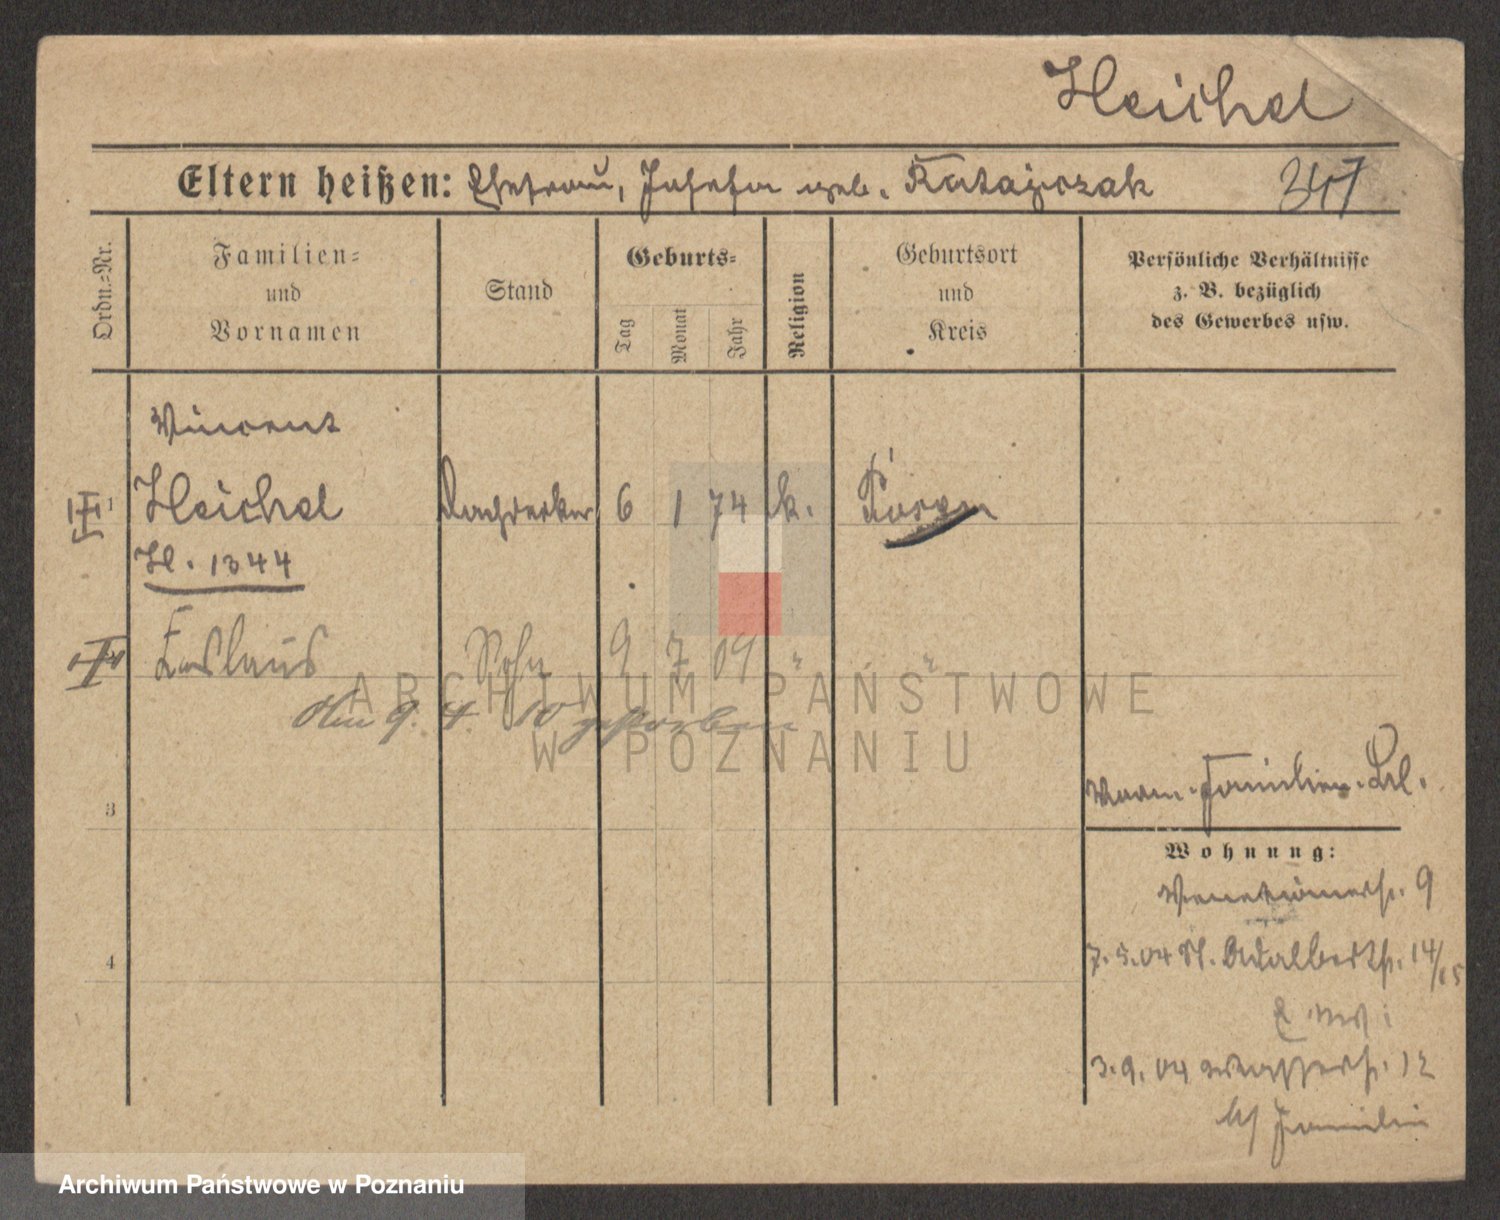 Heichel
Eltern heißen: Ehefrau, Josefa geb. Katajczak 347
Ordn.-Nr.
Familien-
und
Vornamen
Stand
Geburts-
Tag
Monat
Jahr
Religion
Geburtsort
und
Kreis
Persönliche Verhältnisse
z. B. bezüglich
des Gewerbes usw.
Vincent
1 Heichel Dachdecker 6 1 74 k. Posen
H. 1344
Sohn 9 7 09 " "
Am 9. 4. 10 gestorben
3
Familien
Wohnung:
Venetianerstr. 9
4
7. 5. 04 St. Adalbertstr. 14/15
3. 9. 04 Wasserstr. 12
Familie
ARCHIWUM PAŃSTWOWE
W POZNANIU
Archiwum Państwowe w Poznaniu